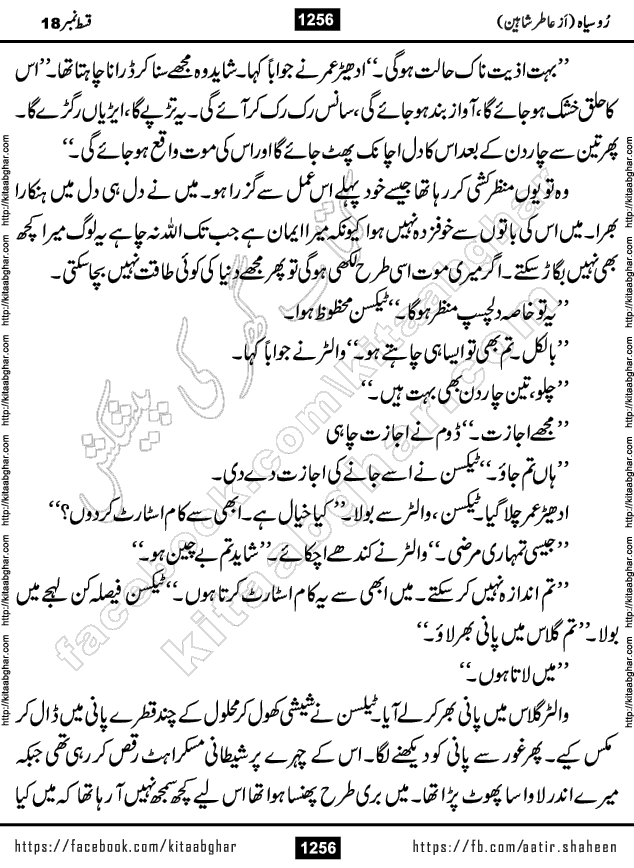 رُوسیاہ (از عاطر شاہین) 1256 قسط نمبر 18
’’بہت اذیت ناک حالت ہوگی۔‘‘ ادھیڑ عمر نے جواباً کہا۔ شاید وہ مجھے سنا کر ڈرانا چاہتا تھا۔ ’’اس
کا حلق خشک ہوجائے گا، آواز بند ہوجائے گی، سانس رک رک کر آئے گی۔ یہ تڑپے گا، ایڑیاں رگڑے گا۔
پھر تین سے چار دن کے بعد اس کا دل اچانک پھٹ جائے گا اور اس کی موت واقع ہوجائے گی۔‘‘
وہ تو یوں منظر کشی کر رہا تھا جیسے خود پہلے اس عمل سے گزرا ہو۔ میں نے دل ہی دل میں ہنکارا
بھرا۔ میں اس کی باتوں سے خوفزدہ نہیں ہوا کیونکہ میرا ایمان ہے جب تک اللہ نہ چاہے یہ لوگ میرا کچھ
بھی نہیں بگاڑ سکتے۔ اگر میری موت اسی طرح لکھی ہوگی تو پھر مجھے دنیا کی کوئی طاقت نہیں بچا سکتی۔
’’یہ تو خاصہ دلچسپ منظر ہوگا۔‘‘ ٹیکسن محظوظ ہوا۔
’’بالکل۔ تم بھی تو ایسا ہی چاہتے ہو۔‘‘ والٹر نے جواباً کہا۔
’’چلو، تین چار دن بھی بہت ہیں۔‘‘
’’مجھے اجازت۔‘‘ ڈوم نے اجازت چاہی
’’ہاں تم جاؤ۔‘‘ ٹیکسن نے اسے جانے کی اجازت دے دی۔
ادھیڑ عمر چلا گیا۔ ٹیکسن، والٹر سے بولا۔ ’’کیا خیال ہے۔ ابھی سے کام اسٹارٹ کردوں؟‘‘
’’جیسی تمہاری مرضی۔‘‘ والٹر نے کندھے اچکائے۔ ’’شاید تم بے چین ہو۔‘‘
’’تم اندازہ نہیں کرسکتے۔ میں ابھی سے یہ کام اسٹارٹ کرتا ہوں۔‘‘ ٹیکسن فیصلہ کن لہجے میں
بولا۔ ’’تم گلاس میں پانی بھر لاؤ۔‘‘
’’میں لاتا ہوں۔‘‘
والٹر گلاس میں پانی بھر کر لے آیا۔ ٹیلسن نے شیشی کھول کر محلول کے چند قطرے پانی میں ڈال کر
مکس کیے۔ پھر غور سے پانی کو دیکھنے لگا۔ اس کے چہرے پر شیطانی مسکراہٹ رقص کر رہی تھی جبکہ
میرے اندر لاوا سا پھوٹ پڑا تھا۔ میں بری طرح پھنسا ہوا تھا اس لیے کچھ سمجھ نہیں آ رہا تھا کہ میں کیا
https://facebook.com/kitaabghar 1256 https://fb.com/aatir.shaheen
http://kitaabghar.com http://kitaabghar.com http://kitaabghar.com http://kitaabghar.com http://kitaabghar.com http://kitaabghar.com
http://kitaabghar.com http://kitaabghar.com http://kitaabghar.com http://kitaabghar.com http://kitaabghar.com http://kitaabghar.com
کتاب گھر کی پیشکش
facebook.com/kitaabghar
kitaabghar.com